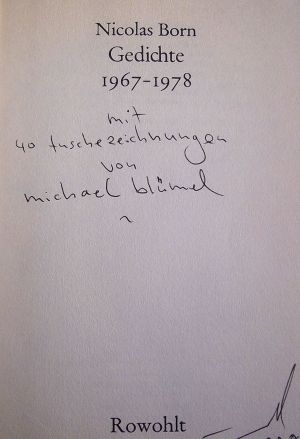 Nicolas Born
Gedichte
1967–1978
mit
40 tuschezeichnungen
von
michael blümel
Rowohlt